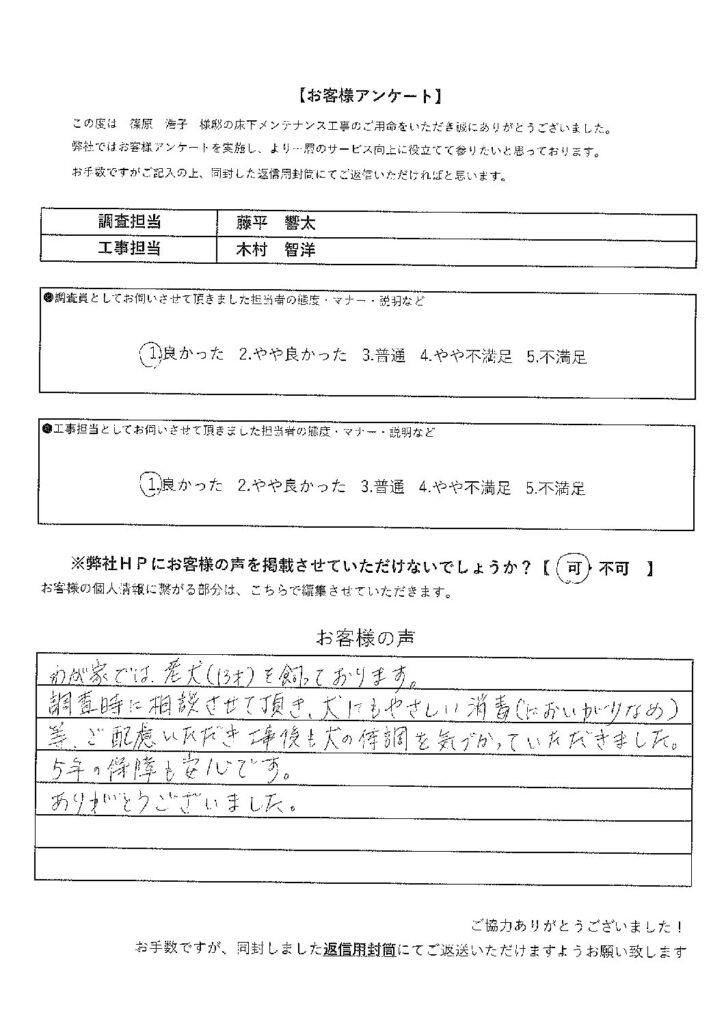 【お客様アンケート】
この度は 篠原 浩子 様邸の床下メンテナンス工事のご用命をいただき誠にありがとうございました。
弊社ではお客様アンケートを実施し、より一層のサービス向上に役立てて参りたいと思っております。
お手数ですがご記入の上、同封した返信用封筒にてご返信いただければと思います。
調査担当 藤平 響太
工事担当 木村 智洋
●調査員としてお伺いさせて頂きました担当者の態度・マナー・説明など
1.良かった 2.やや良かった 3.普通 4.やや不満足 5.不満足
●工事担当としてお伺いさせて頂きました担当者の態度・マナー・説明など
1.良かった 2.やや良かった 3.普通 4.やや不満足 5.不満足
※弊社HPにお客様の声を掲載させていただけないでしょうか？【 可・不可 】
お客様の個人情報に繋がる部分は、こちらで編集させていただきます。
お客様の声
わが家では、老犬(13才)を飼っております。
調査時に相談させて頂き、犬にもやさしい消毒(においがりなめ)
等、ご配慮いただき工事後も犬の体調を気づかっていただきました。
5年の保障も安心です。
ありがとうございました。
ご協力ありがとうございました！
お手数ですが、同封しました返信用封筒にてご返送いただけますようお願い致します